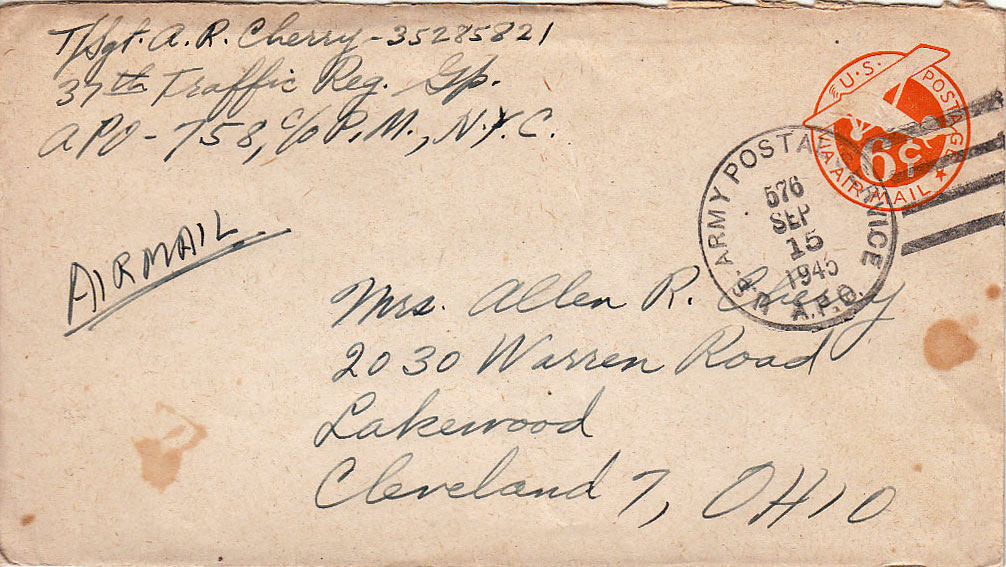 T/Sgt. A. R. Cherry - 35285821
37th Traffic Reg. Gp.
APO - 758, c/o P.M., N.Y.C.
U.S. POSTAGE
VIA AIR MAIL
6¢
U.S. ARMY POSTAL SERVICE
A.P.O.
576
SEP
15
1945
AIRMAIL
Mrs. Allen R. Cherry
2030 Warren Road
Lakewood
Cleveland 7, OHIO